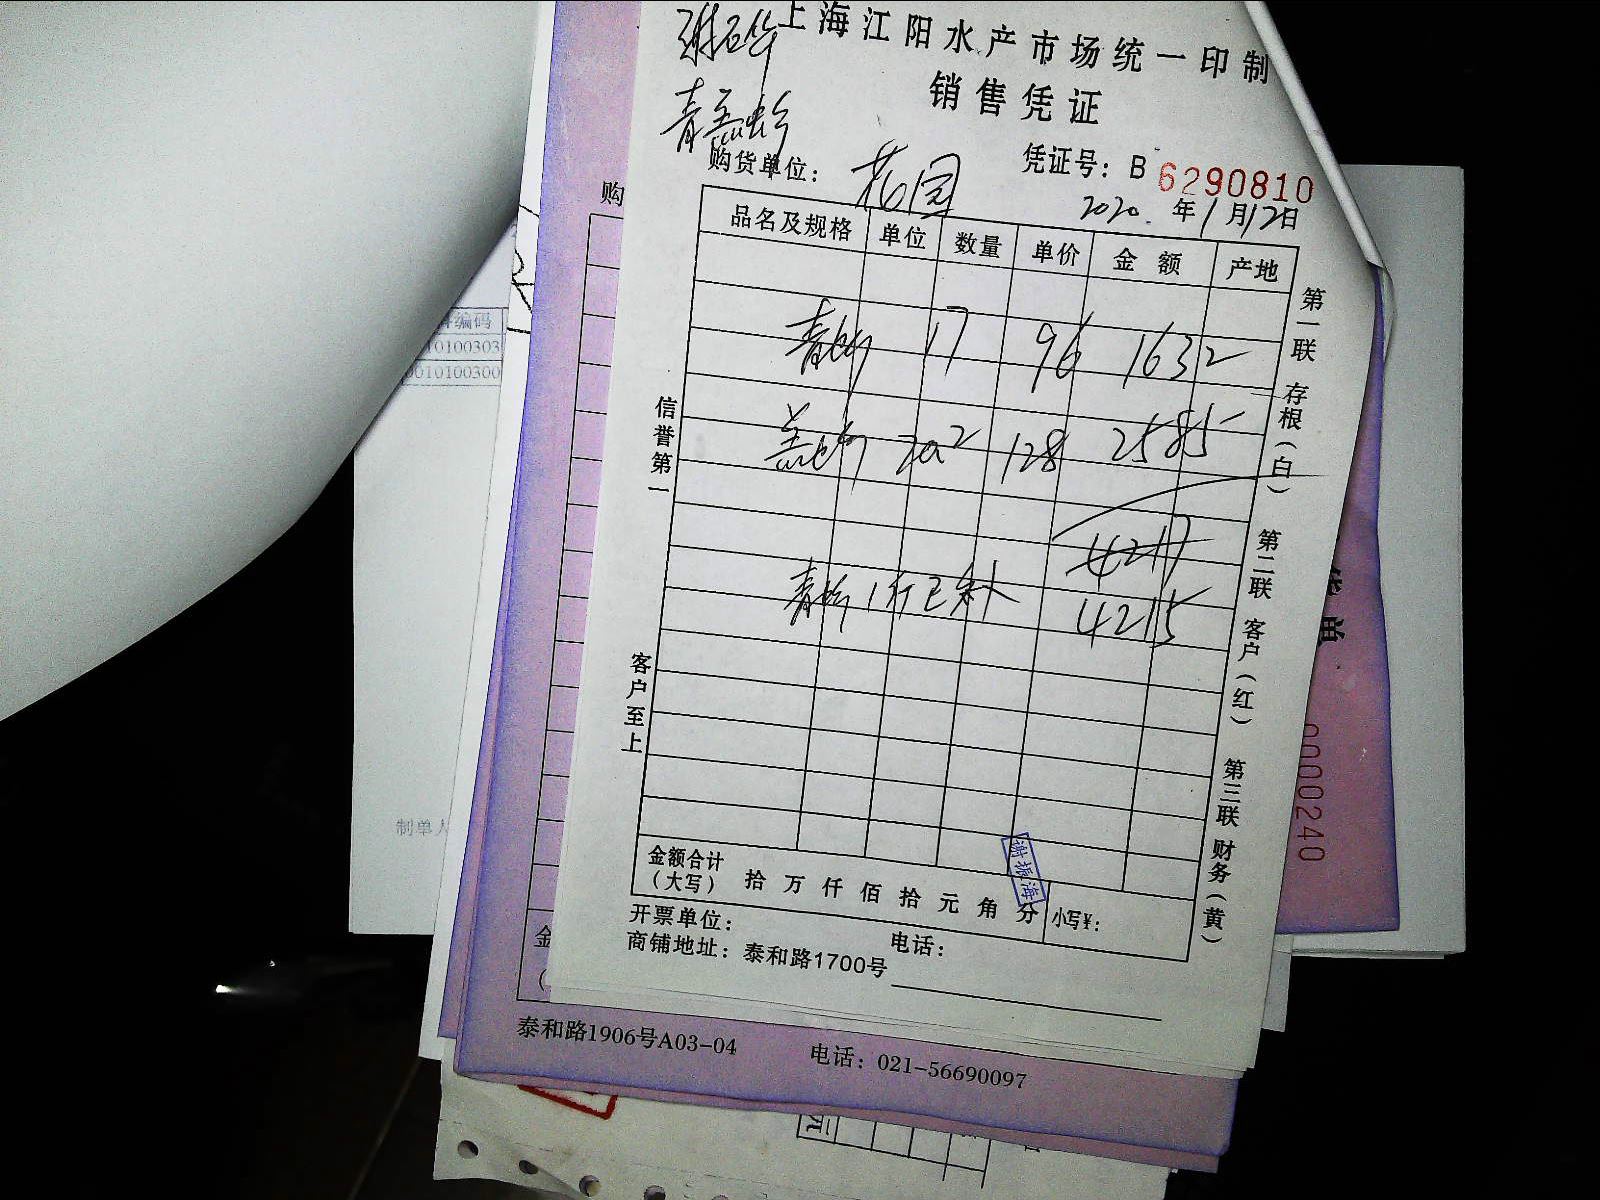 谢石华
上海江阳水产市场统一印制
销售凭证
青羔蚧
购货单位： 花园
凭证号：B 6290810
2020. 年1月12日
品名及规格 单位 数量 单价 金额 产地
17 96 1632
20² 128 2585
4217
1斤已补 4215
金额合计
（大写） 拾 万 仟 佰 拾 元 角 分 小写¥：
谢振海
开票单位： 电话：
商铺地址：泰和路1700号
信誉第一
客户至上
第一联 存根（白） 第二联 客户（红） 第三联 财务（黄）
购
金
编码
10100303
0010100300
制单人
0000240
泰和路1906号A03-04 电话：021-56690097